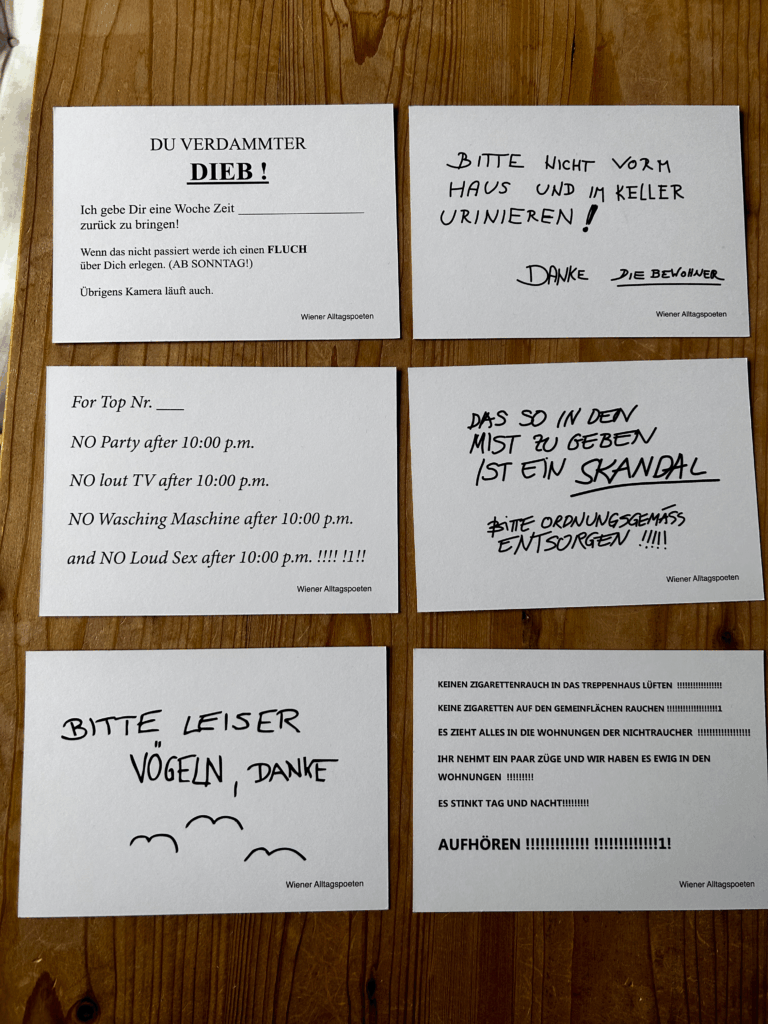 DU VERDAMMTER
DIEB !
Ich gebe Dir eine Woche Zeit ____________________
zurück zu bringen!
Wenn das nicht passiert werde ich einen FLUCH
über Dich erlegen. (AB SONNTAG!)
Übrigens Kamera läuft auch.
Wiener Alltagspoeten
BITTE NICHT VORM
HAUS UND IM KELLER
URINIEREN!
DANKE DIE BEWOHNER
Wiener Alltagspoeten
For Top Nr. ___
NO Party after 10:00 p.m.
NO lout TV after 10:00 p.m.
NO Wasching Maschine after 10:00 p.m.
and NO Loud Sex after 10:00 p.m. !!!! !1!!
Wiener Alltagspoeten
DAS SO IN DEN
MIST ZU GEBEN
IST EIN SKANDAL
BITTE ORDNUNGSGEMÄSS
ENTSORGEN !!!!!
Wiener Alltagspoeten
BITTE LEISER
VÖGELN, DANKE
Wiener Alltagspoeten
KEINEN ZIGARETTENRAUCH IN DAS TREPPENHAUS LÜFTEN !!!!!!!!!!!!!!!!!
KEINE ZIGARETTEN AUF DEN GEMEINFLÄCHEN RAUCHEN !!!!!!!!!!!!!!!!!!!1
ES ZIEHT ALLES IN DIE WOHNUNGEN DER NICHTRAUCHER !!!!!!!!!!!!!!!!!!!
IHR NEHMT EIN PAAR ZÜGE UND WIR HABEN ES EWIG IN DEN
WOHNUNGEN !!!!!!!!!
ES STINKT TAG UND NACHT!!!!!!!!!
AUFHÖREN !!!!!!!!!!!!! !!!!!!!!!!!!!1!
Wiener Alltagspoeten